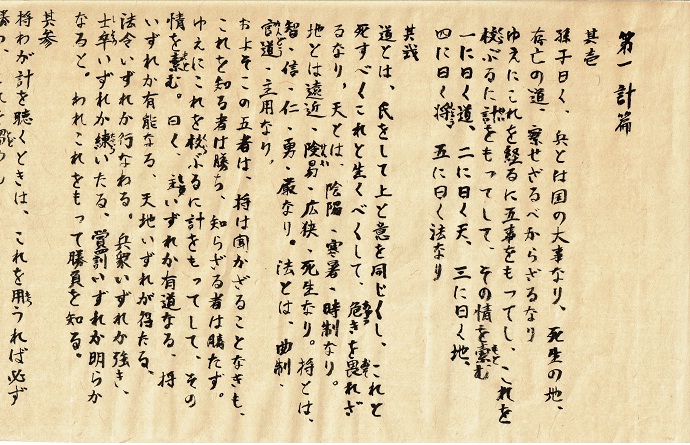 第一 計篇
其壱
孫子曰く、兵とは国の大事なり、死生の地、
存亡の道、察せざるべからざるなり
ゆえにこれを経るに五事をもってし、これを
校ぶるに計をもってして、その情を索む
一に曰く道、二に曰く天、三に曰く地、
四に曰く将、五に曰く法なり
其弐
道とは、民をして上と意を同じくし、これと
死すべくこれと生くべくして、危きを畏れざ
るなり、天とは、陰陽・寒暑・時制なり。
地とは遠近・険易・広狭・死生なり。将とは、
智・信・仁・勇・厳なり。法とは、曲制・
官道・主用なり。
およそこの五者は、将は聞かざることなきも、
これを知る者は勝ち、知らざる者は勝たず。
ゆえにこれを校ぶるに計をもってして、その
情を索む。曰く、主いずれか有道なる、将
いずれか有能なる、天地いずれか得たる、
法令いずれか行なわる。兵衆いずれか強き、
士卒いずれか練いたる、賞罰いずれか明らか
なると。われこれをもって勝負を知る。
其参
将わが計を聴くときは、これを用うれば必ず